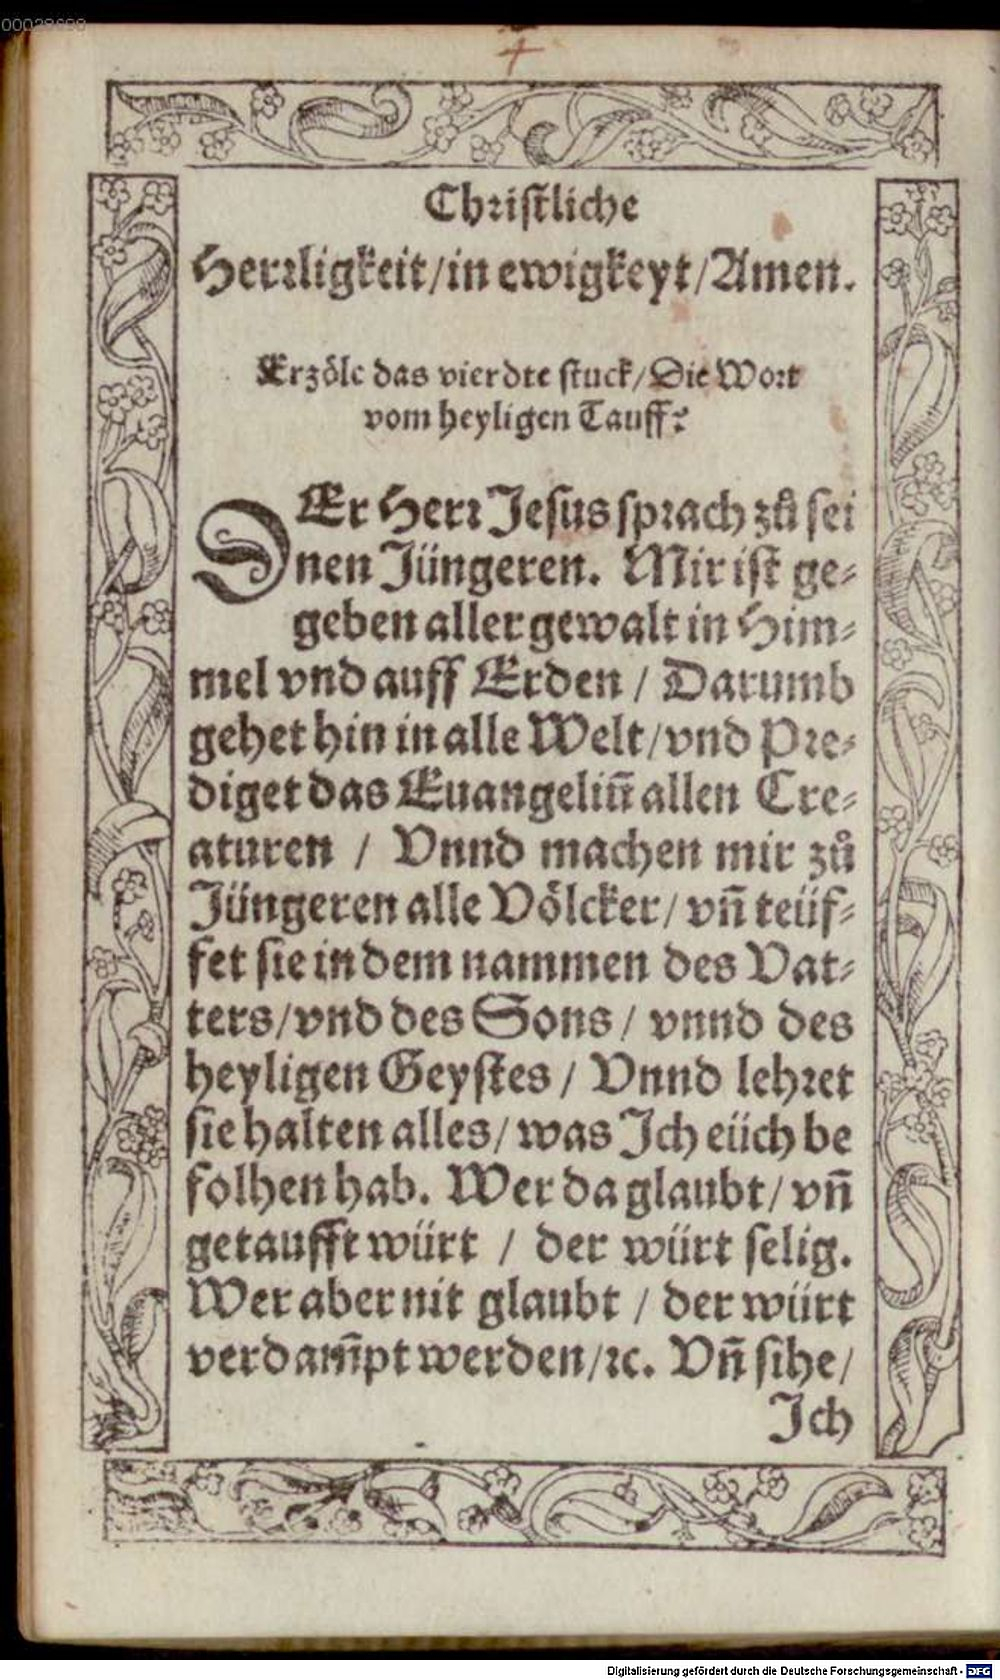 00028690
4
Christliche
Herrligkeit/in ewigkeyt/Amen.
Erzöle das vierdte stuck/Die Wort
vom heyligen Tauff?
DEr Herr Jesus sprach zů sei
nen Jüngeren. Mir ist ge-
geben aller gewalt in Him-
mel vnd auff Erden / Darumb
gehet hin in alle Welt/vnd Pre-
diget das Euangeliũ allen Cre-
aturen / Vnnd machen mir zů
Jüngeren alle Völcker/ vñ teüf-
fet sie in dem nammen des Vat-
ters/vnd des Sons / vnnd des
heyligen Geystes / Vnnd lehret
sie halten alles/ was Ich eüch be
folhen hab. Wer da glaubt/ vñ
getaufft würt / der würt selig.
Wer aber nit glaubt / der würt
verdam̃pt werden/ꝛc. Vñ sihe/
Ich
Digitalisierung gefördert durch die Deutsche Forschungsgemeinschaft - DFG